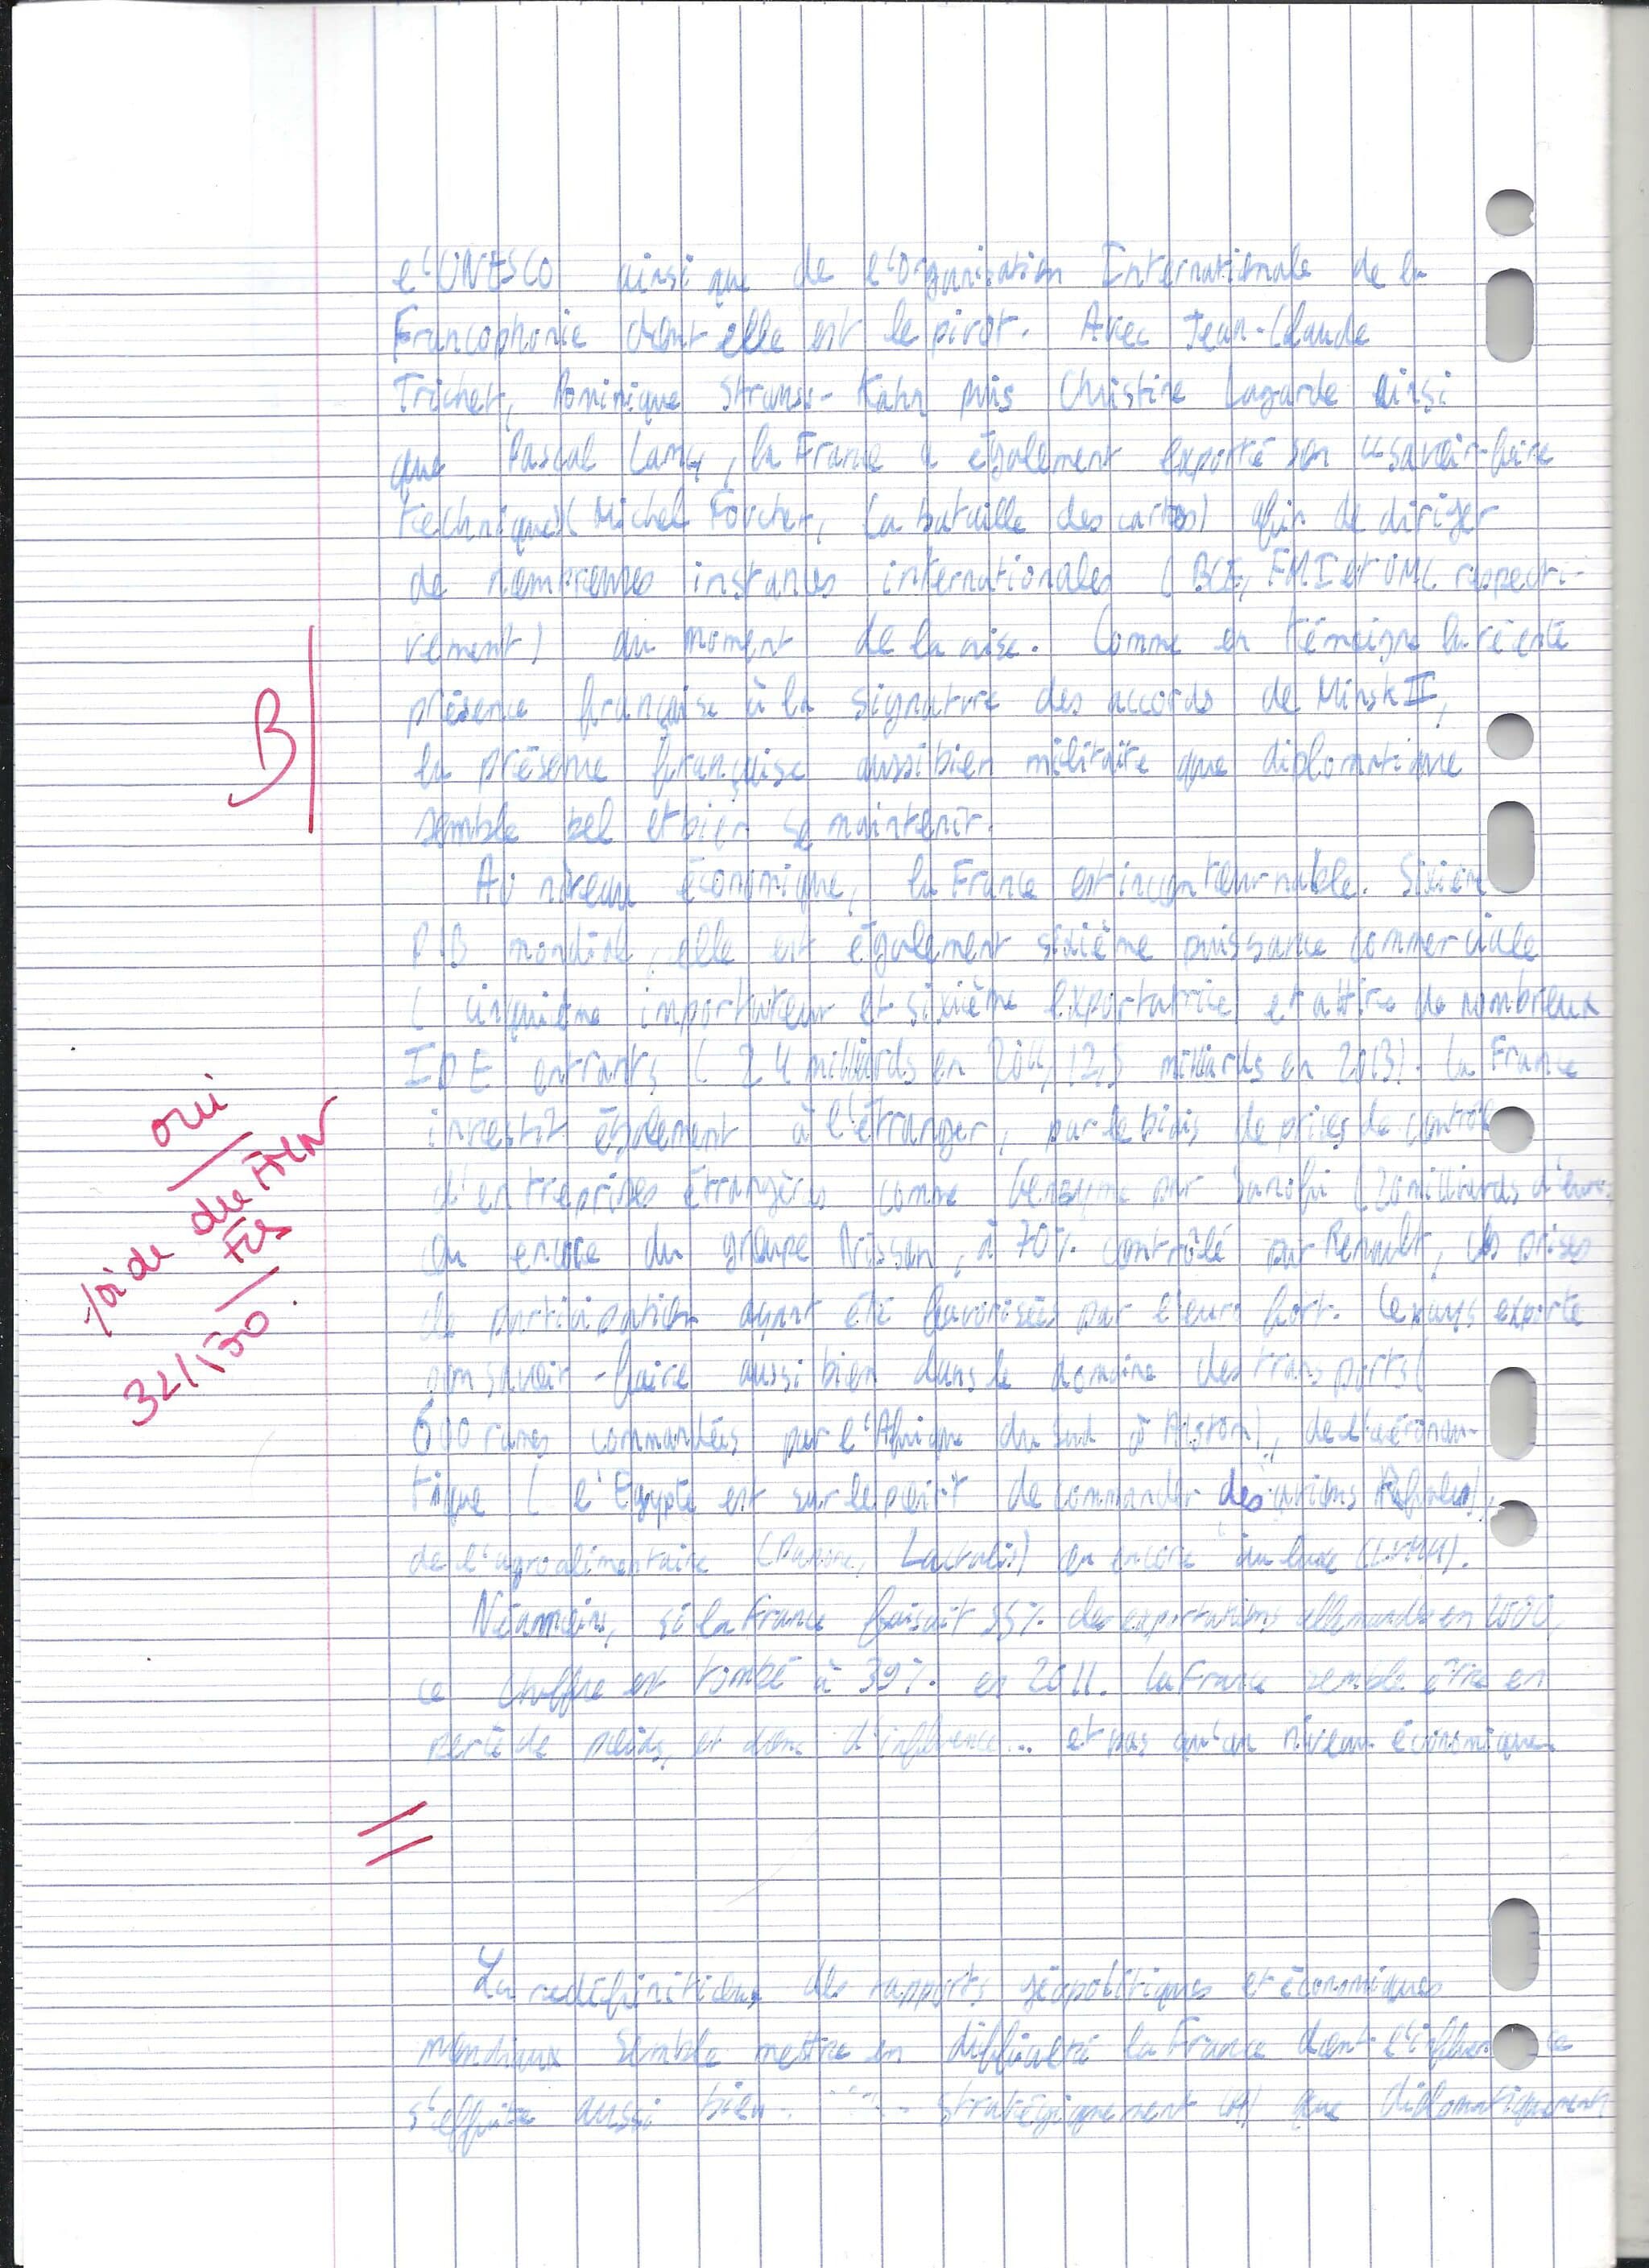 l'UNESCO ainsi que de l'Organisation Internationale de la
Francophonie dont elle est le pivot. Avec Jean-Claude
Trichet, Dominique Strauss-Kahn puis Christine Lagarde ainsi
que Pascal Lamy, la France a également exporté son "savoir-faire
technique" (Michel Foucher, La bataille des cartes) afin de diriger
de nombreuses instances internationales (BCE, FMI et OMC respecti-
vement) au moment de la crise. Comme en témoigne la récente
présence française à la signature des accords de Minsk II,
la présence française aussi bien militaire que diplomatique
semble bel et bien se maintenir.
B
Au niveau économique, la France est incontournable. Sixième
PIB mondial, elle est également sixième puissance commerciale
(cinquième importateur et sixième exportatrice) et attire de nombreux
IDE entrants ( milliards en , 12,5 milliards en 2013). La France
investit également à l'étranger, par le biais de prises de contrôle
d'entreprises étrangères comme Genzyme par Sanofi (20 milliards d'euros)
ou encore du groupe Nissan, à 70% contrôlé par Renault, les prises
de participation ayant été favorisées par l'euro fort. Le pays exporte
son savoir-faire aussi bien dans le domaine des transports (
600 rames commandées par l'Afrique du Sud à Alstom), de l'aéronau-
tique (l'Egypte est sur le point de commander des avions Rafales),
de l'agroalimentaire (Danone, Lactalis) ou encore du luxe (LVMH).
oui
poids des
32/130
Néanmoins, si la France faisait 55% des exportations allemandes en 2000,
ce chiffre est tombé à 39% en 2011. La France semble être en
perte de poids, et donc d'influence... et pas qu'au niveau économique.
La redéfinition des rapports géopolitiques et économiques
mondiaux semble mettre en difficulté la France dont l'influence
s'effrite aussi bien stratégiquement (A) que diplomatiquement